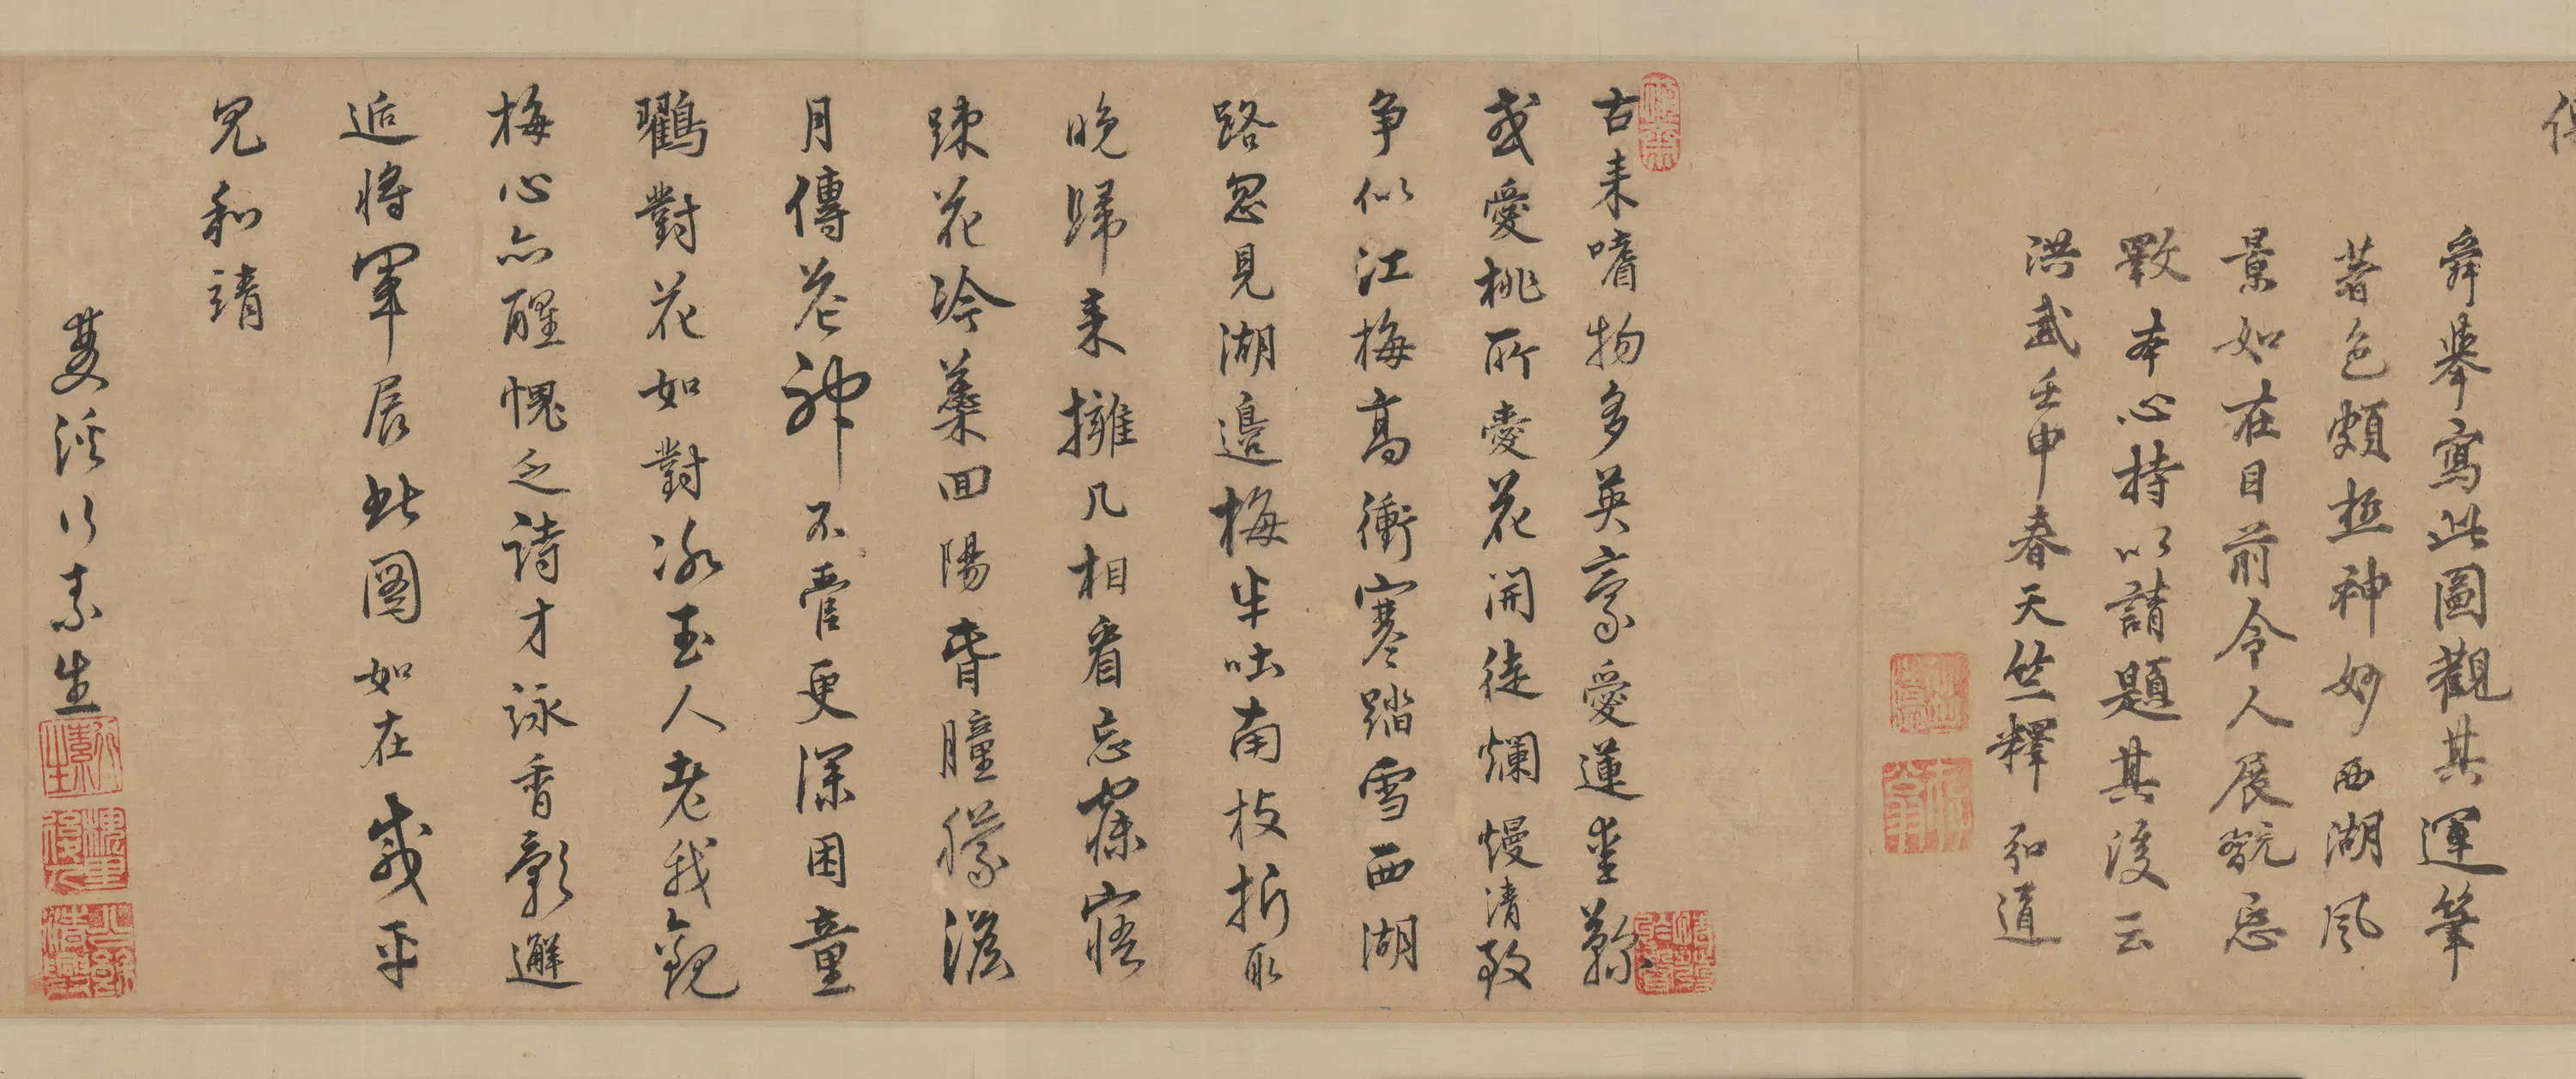 舜舉寫此圖觀其運筆
著色頗極神妙西湖風
景如在目前令人展翫忘
斁本心持以請題其後云
洪武壬申春天竺釋弘道
古來嗜物多英豪愛蓮愛菊
或愛桃所愛花開徒爛熳清致
争似江梅高衝寒踏雪西湖
路忽見湖邉梅半吐南枝折取
晚歸来擁几相看忘寐寤
踈花冷蘂回陽春朣朦淡
月傳花神不管更深困童
鸖對花如對冰玉人老我觀
梅心亦醒愧乏詩才詠香影邂
逅將軍展此圖如在咸平
見和靖
雙溪行素生